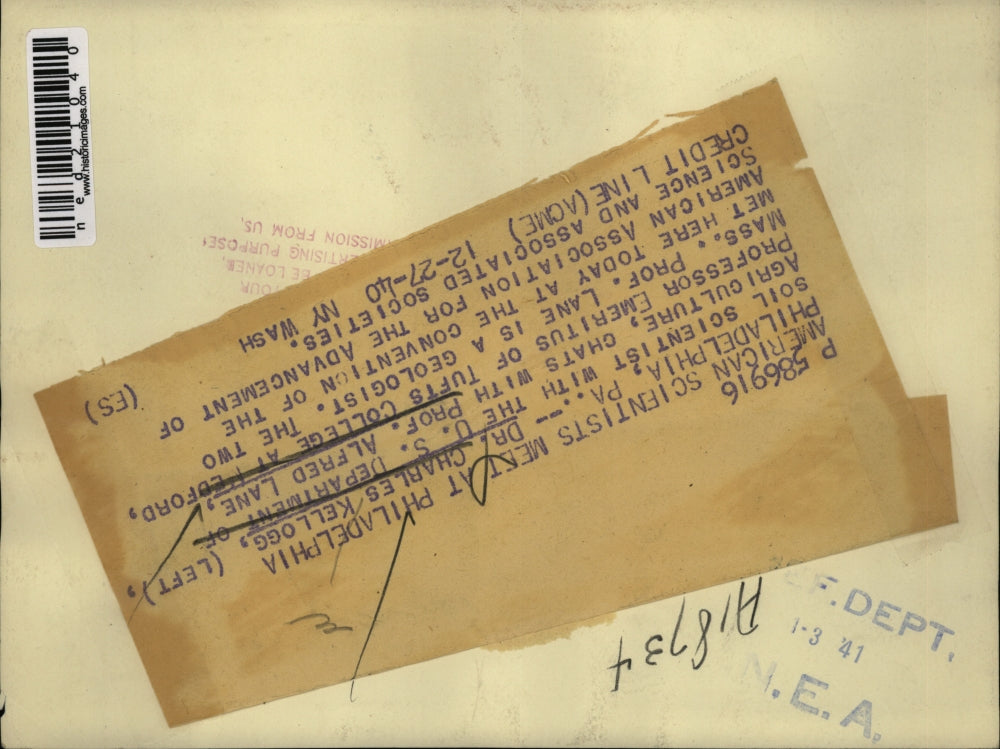 P
586916
AMERICAN SCIENTISTS MEET AT PHILADELPHIA
PHILADELPHIA, PA.-- DR. CHARLES KELLOGG, (LEFT),
SOIL SCIENTIST WITH THE U. S. DEPARTMENT OF
AGRICULTURE, CHATS WITH PROF. ALFRED LANE,
PROFESSOR EMERITUS OF TUFTS COLLEGE AT MEDFORD,
MASS. PROF. LANE IS A GEOLOGIST. THE TWO
MET HERE TODAY AT THE CONVENTION OF THE
AMERICAN ASSOCIATION FOR THE ADVANCEMENT OF
SCIENCE AND ASSOCIATED SOCIETIES.
CREDIT LINE (ACME) 12-27-40 NY WASH (ES)
LOANED,
PURPOSE
MISSION FROM US.
A18734
F. DEPT.
1-3 '41
N.E.A.
ned21040
www.historicimages.com